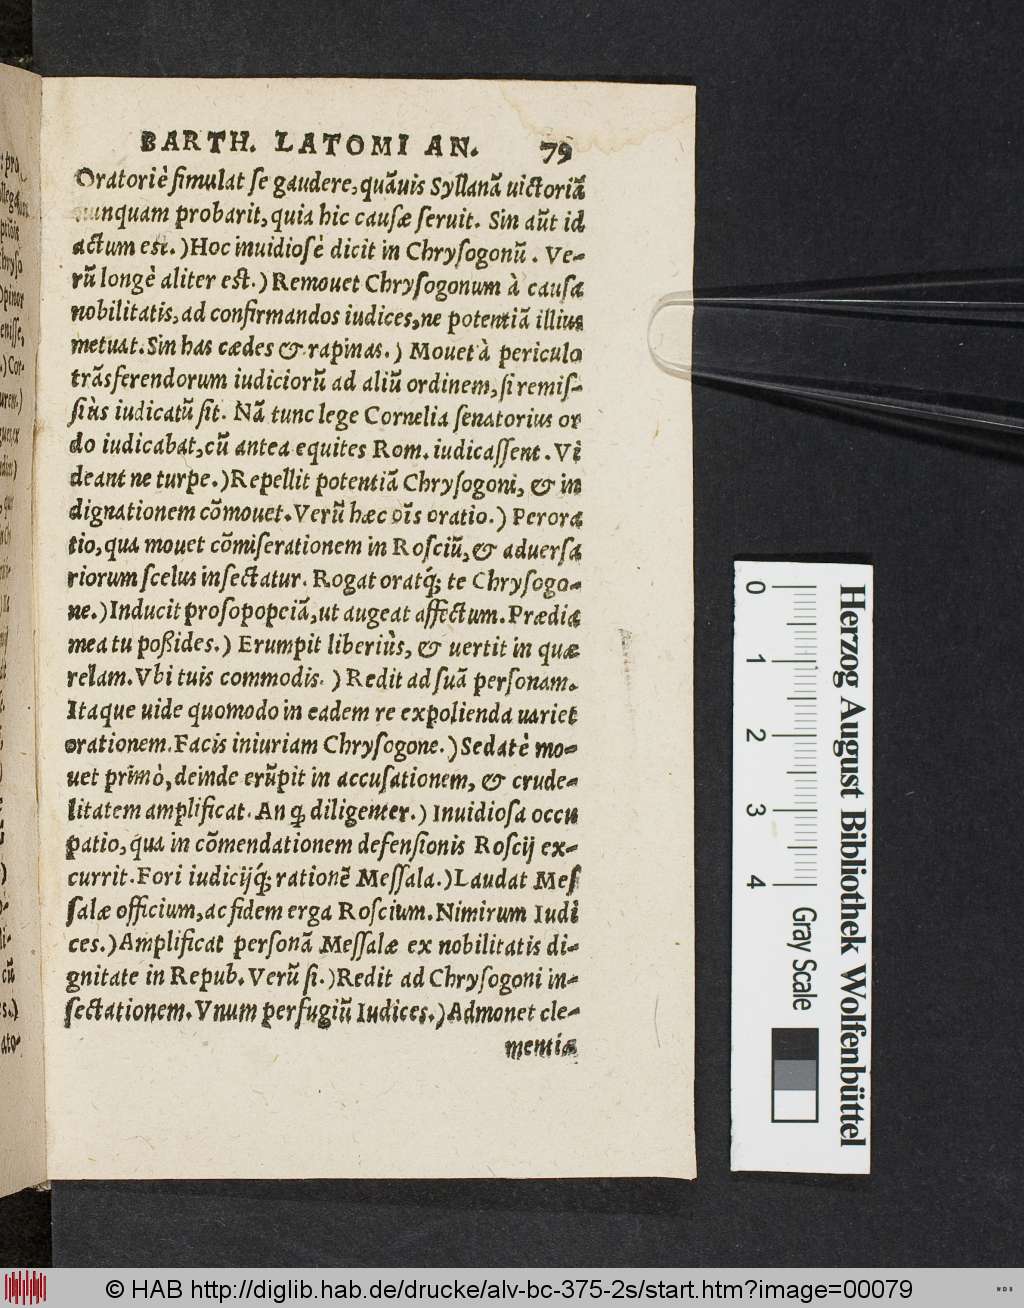 BARTH. LATOMI AN. 79
Oratoriè ſimulat ſe gaudere, quãuis Syllanã uictoriã
nunquam probarit, quia hic cauſæ ſeruit. Sin aũt id
actum est.) Hoc inuidioſè dicit in Chryſogonũ. Ve-
rũ longè aliter est.) Remouet Chryſogonum à cauſa
nobilitatis, ad confirmandos iudices, ne potentiã illius
metuat. Sin has cædes & rapinas.) Mouet à periculo
trãsferendorum iudiciorũ ad aliũ ordinem, ſi remiſ-
ſiùs iudicatũ ſit. Nã tunc lege Cornelia ſenatorius or
do iudicabat, cũ antea equites Rom. iudicaſſent. Vi
deant ne turpe.) Repellit potentiã Chryſogoni, & in
dignationem cõmouet. Verũ hæc oĩs oratio.) Perora
tio, qua mouet cõmiſerationem in Roſciũ, & aduerſa
riorum ſcelus inſectatur. Rogat oratq́; te Chryſogo-
ne.) Inducit proſopopeiã, ut augeat affectum. Prædia
mea tu poßides.) Erumpit liberiùs, & uertit in quæ
relam. Vbi tuis commodis.) Redit ad ſuã perſonam.
Itaque uide quomodo in eadem re expolienda uariet
orationem. Facis iniuriam Chryſogone.) Sedatè mo-
uet primò, deinde erũpit in accuſationem, & crude-
litatem amplificat. An q̃ diligenter.) Inuidioſa occu
patio, qua in cõmendationem defenſionis Roſcij ex-
currit. Fori iudicijq́; rationẽ Meſſala.) Laudat Meſ
ſalæ officium, ac fidem erga Roſcium. Nimirum Iudi
ces.) Amplificat perſonã Meſſalæ ex nobilitatis di-
gnitate in Repub. Verũ ſi.) Redit ad Chryſogoni in-
ſectationem. Vnum perfugiũ Iudices.) Admonet cle-
mentiæ
0 1 2 3 4
Gray Scale
Herzog August Bibliothek Wolfenbüttel
© HAB http://diglib.hab.de/drucke/alv-bc-375-2s/start.htm?image=00079